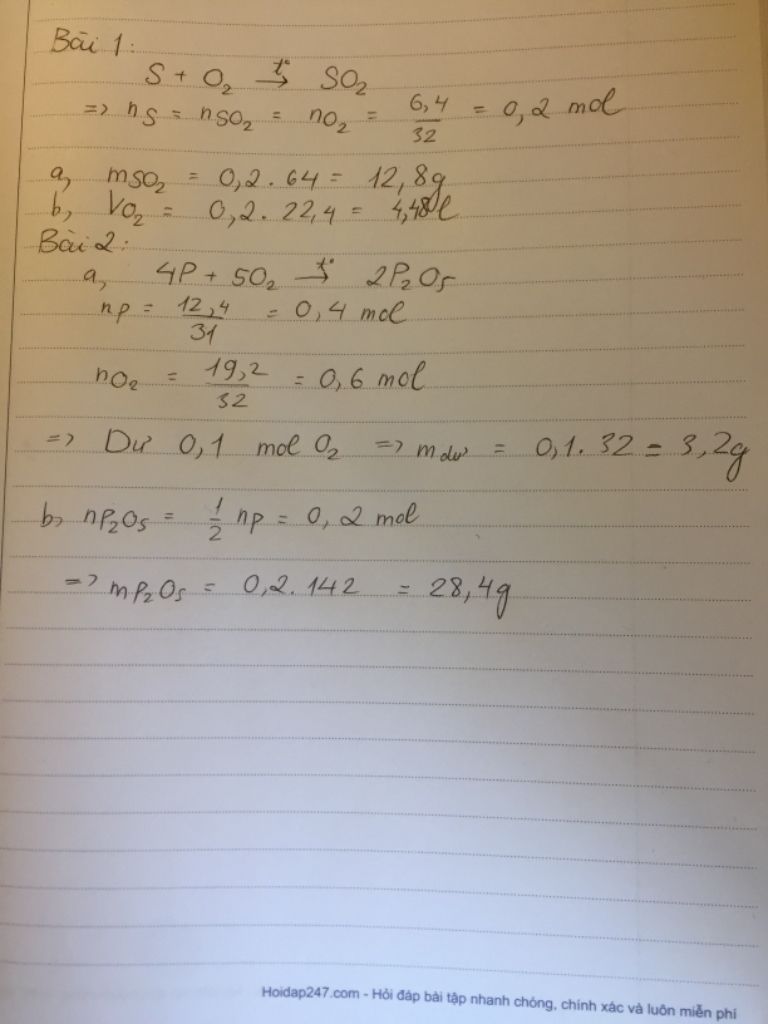 Bài 1:
S + O₂ →(t°) SO₂
=> nS = nSO₂ = nO₂ = 6,4/32 = 0,2 mol
a, mSO₂ = 0,2 . 64 = 12,8g
b, VO₂ = 0,2 . 22,4 = 4,48l
Bài 2:
a, 4P + 5O₂ →(t°) 2P₂O₅
nP = 12,4/31 = 0,4 mol
nO₂ = 19,2/32 = 0,6 mol
=> Dư 0,1 mol O₂ => m dư = 0,1 . 32 = 3,2g
b, nP₂O₅ = 1/2 nP = 0,2 mol
=> mP₂O₅ = 0,2 . 142 = 28,4g
Hoidap247.com - Hỏi đáp bài tập nhanh chóng, chính xác và luôn miễn phí